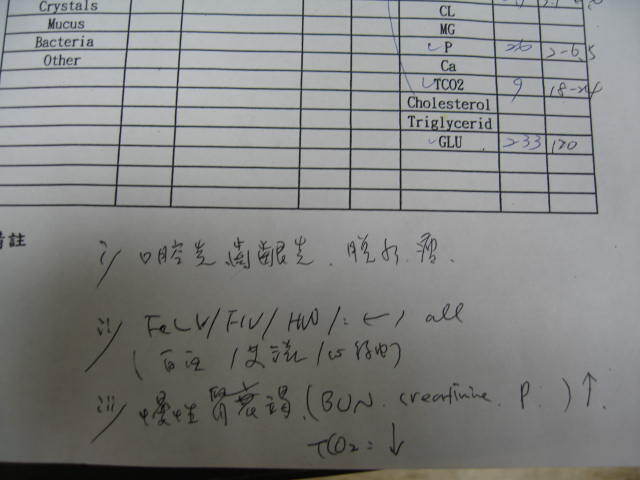 Crystals
CL
Mucus
MG
Bacteria
P 26 2-6.5
Other
Ca
TCO2 9 18-24
Cholesterol
Triglycerid
GLU 233 170
備註
i/ 口腔炎 齒齦炎. 脫水. 瘦.
ii/ FeLV/FIV/HW/: (-) all
iii/ 慢性腎衰竭. (BUN. creatinine. P. ) ↑.
TCO2: ↓